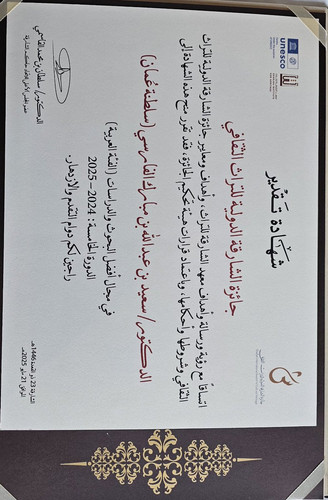 unesco
شهادة تقدير
جائزة الشارقة الدولية للتراث الثقافي
اتساقًا مع رؤية ورسالة وأهداف معهد الشارقة للتراث، وأهداف ومعايير جائزة الشارقة الدولية للتراث
الثقافي وشروطها وأحكامها، وباعتماد قرارات هيئة تحكيم الجائزة، فقد تقرر منح هذه الشهادة إلى
الدكتور/ سعيد بن عبدالله بن مبارك الفارسي (سلطنة عُمان)
في مجال أفضل البحوث والدراسات (الفئة العربية)
الدورة الخامسة: 2024 – 2025
راجين لكم دوام التقدم والازدهار،
الشارقة 23 ذو القعدة 1446هـ
الموافق 21 مايو 2025م
الدكتور/ سلطان بن محمد القاسمي